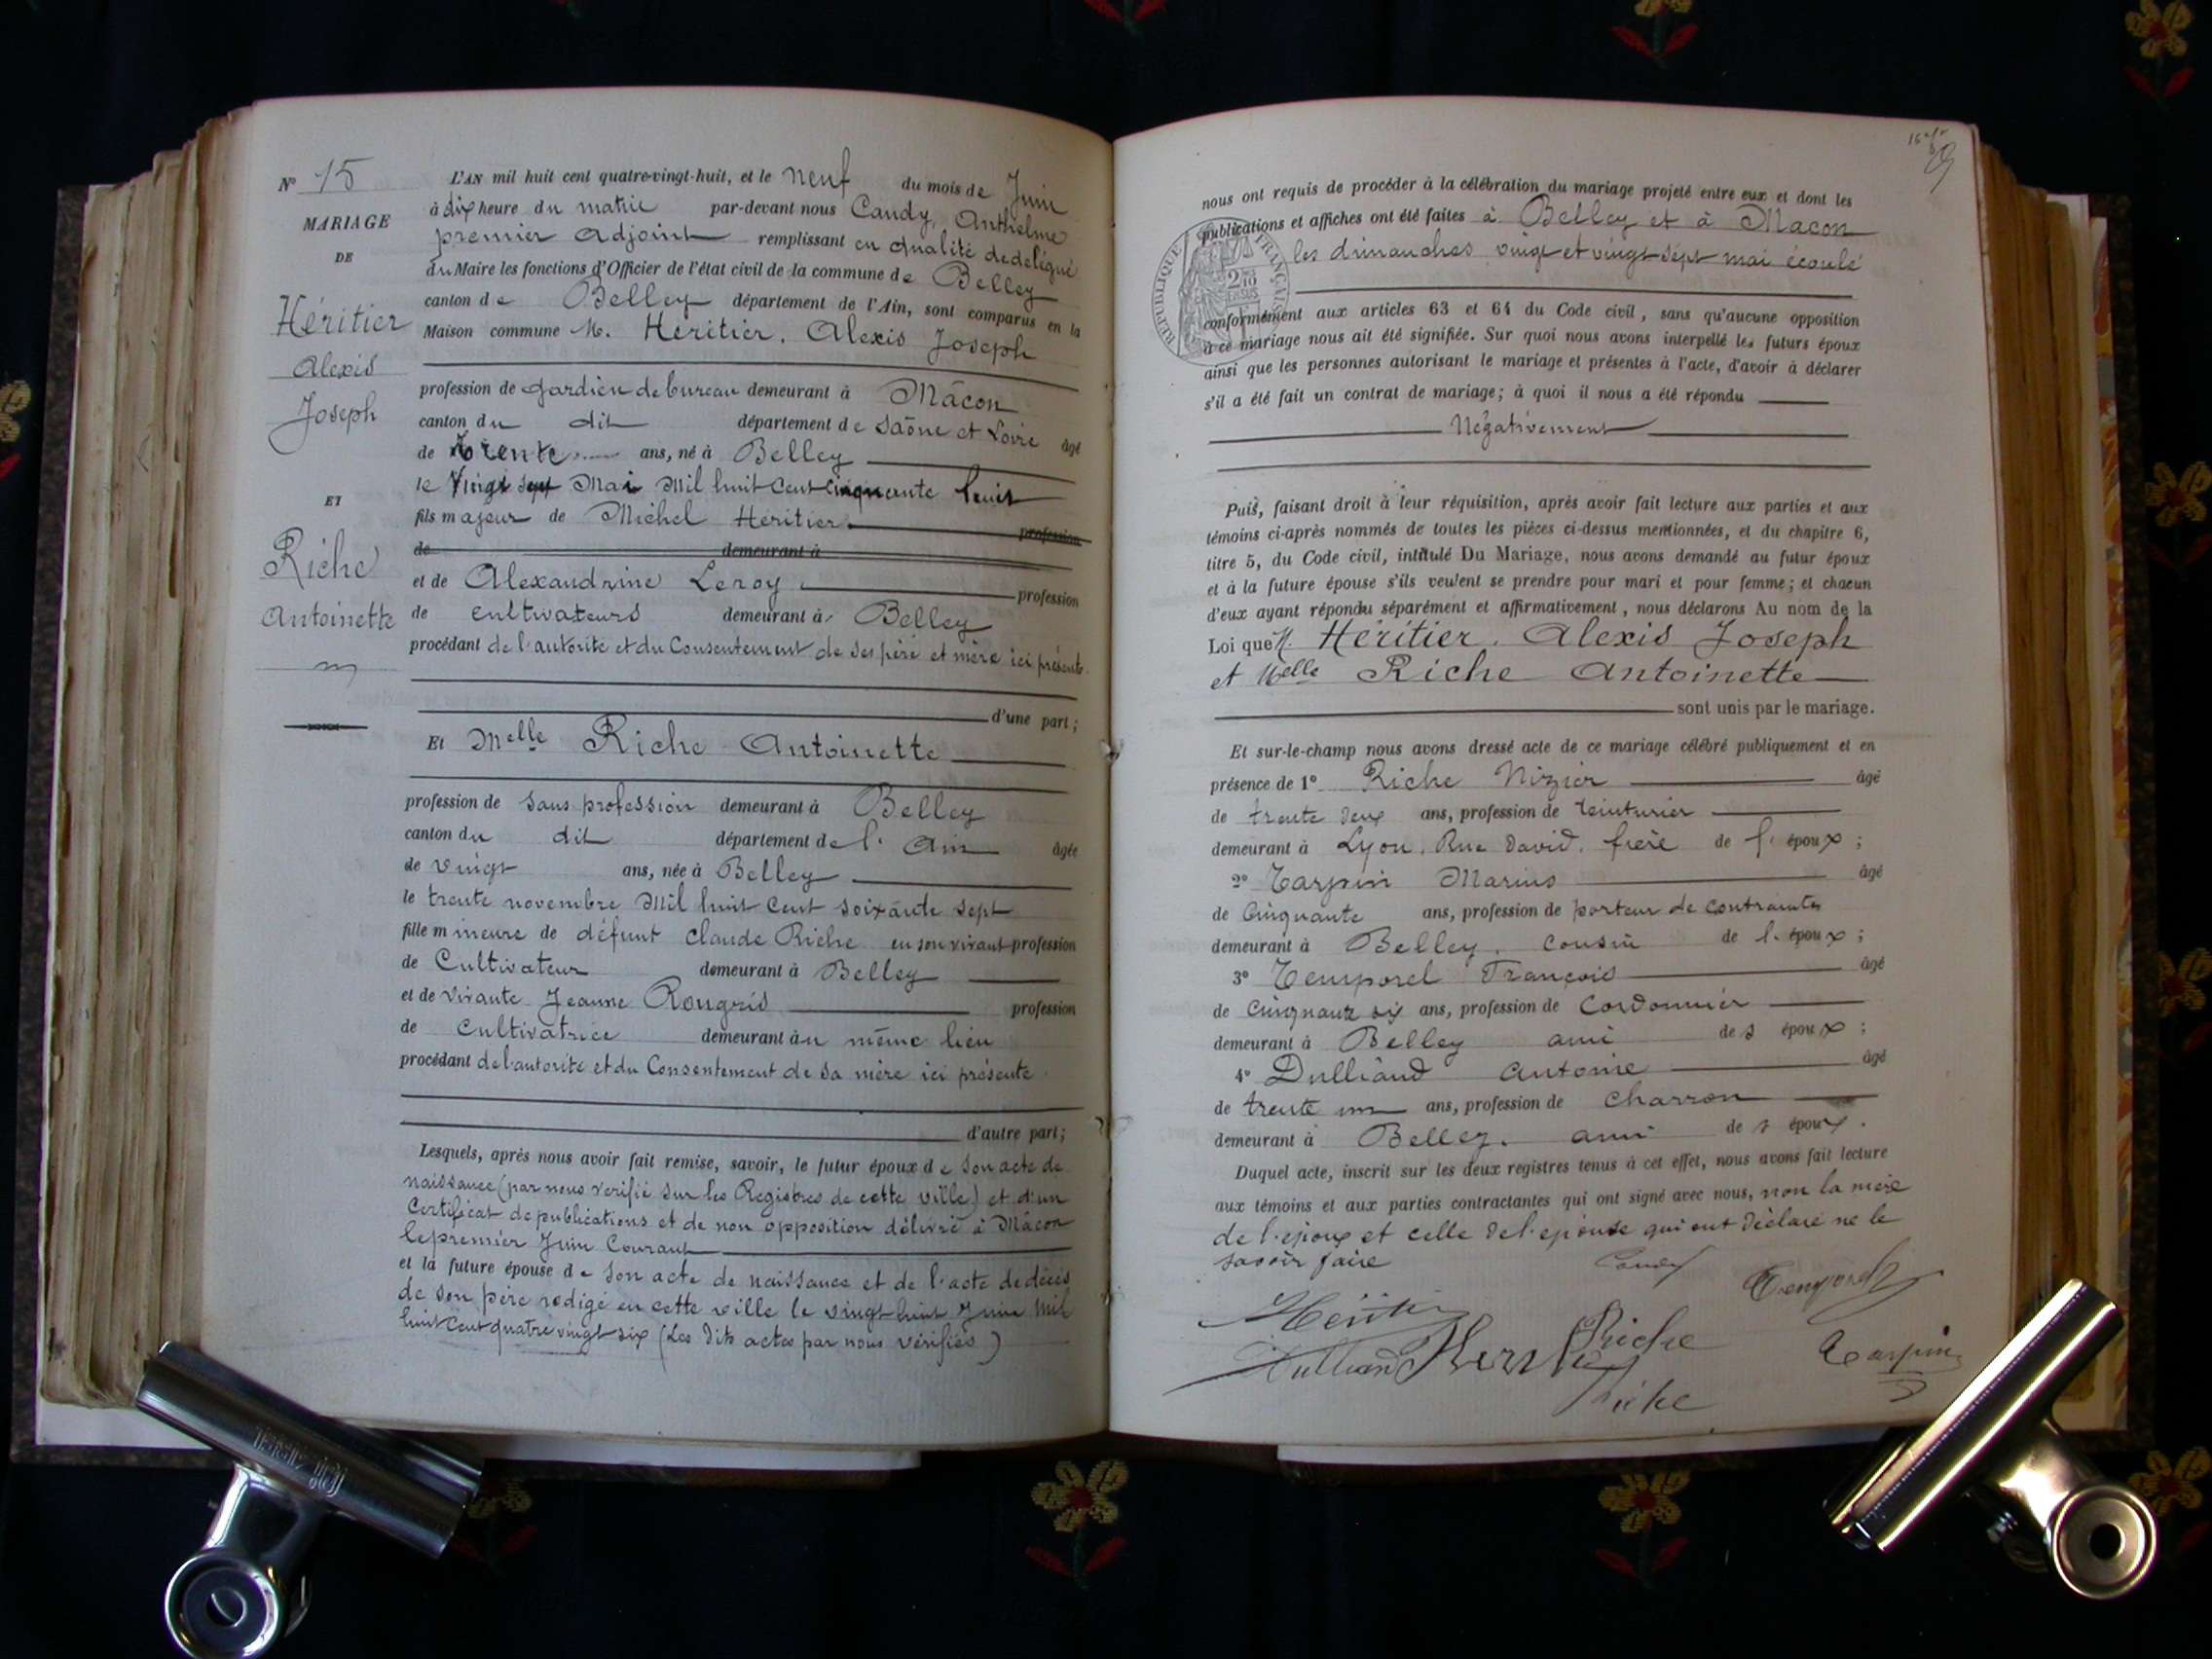 N° 15
MARIAGE
DE
Héritier
Alexis
Joseph
ET
Riche
Antoinette
L'AN mil huit cent quatre-vingt-huit, et le neuf du mois de Juin
à dix heure du matin par-devant nous Candy, Anthelme
premier adjoint remplissant en qualité de délégué
du Maire les fonctions d'Officier de l'état civil de la commune de Belley
canton de Belley département de l'Ain, sont comparus en la
Maison commune M. Héritier, Alexis Joseph
profession de gardien de bureau demeurant à Mâcon
canton du dit département de Saône et Loire âgé
de trente ans, né à Belley
le Vingt sept Mai Mil huit Cent Cinquante huit
fils majeur de Michel Héritier profession
de demeurant à
et de Alexandrine Leroy profession
de cultivateurs demeurant à Belley
procédant de l'autorité et du Consentement de ses père et mère ici présents
d'une part;
Et Melle Riche Antoinette
profession de sans profession demeurant à Belley
canton du dit département de l'Ain âgée
de vingt ans, née à Belley
le trente novembre Mil huit Cent soixante sept
fille mineure de défunt Claude Riche en son vivant profession
de Cultivateur demeurant à Belley
et de vivante Jeanne Rougris profession
de Cultivatrice demeurant au même lieu
procédant de l'autorité et du Consentement de sa mère ici présente
d'autre part;
Lesquels, après nous avoir fait remise, savoir, le futur époux de son acte de
naissance (par nous verifié sur les Registres de cette ville) et d'un
Certificat de publications et de non opposition délivré à Mâcon
le premier Juin Courant
et la future épouse de son acte de naissance et de l'acte de décès
de son père rédigé en cette ville le vingt huit Juin mil
huit Cent quatre vingt six (Les dits actes par nous vérifiés)
nous ont requis de procéder à la célébration du mariage projeté entre eux et dont les
publications et affiches ont été faites à Belley et à Macon
les dimanches vingt et vingt sept mai écoulé
RÉPUBLIQUE FRANÇAISE
conformément aux articles 63 et 64 du Code civil, sans qu'aucune opposition
à ce mariage nous ait été signifiée. Sur quoi nous avons interpellé les futurs époux
ainsi que les personnes autorisant le mariage et présentes à l'acte, d'avoir à déclarer
s'il a été fait un contrat de mariage; à quoi il nous a été répondu
Négativement
Puis, faisant droit à leur réquisition, après avoir fait lecture aux parties et aux
témoins ci-après nommés de toutes les pièces ci-dessus mentionnées, et du chapitre 6,
titre 5, du Code civil, intitulé Du Mariage, nous avons demandé au futur époux
et à la future épouse s'ils veulent se prendre pour mari et pour femme; et chacun
d'eux ayant répondu séparément et affirmativement, nous déclarons Au nom de la
Loi que M. Héritier, Alexis Joseph
et Melle Riche Antoinette
sont unis par le mariage.
Et sur-le-champ nous avons dressé acte de ce mariage célébré publiquement et en
présence de 1° Riche Nizier âgé
de trente deux ans, profession de teinturier
demeurant à Lyon, Rue David, frère de l' époux;
2° Tarpin Marius âgé
de Cinquante ans, profession de porteur de contraintes
demeurant à Belley, cousin de l' époux;
3° Temporel François âgé
de Cinquante six ans, profession de Cordonnier
demeurant à Belley ami de s époux;
4° Dulliand Antoine âgé
de trente un ans, profession de charron
demeurant à Belley, ami de s époux.
Duquel acte, inscrit sur les deux registres tenus à cet effet, nous avons fait lecture
aux témoins et aux parties contractantes qui ont signé avec nous, non la mère
de l'époux et celle de l'épouse qui ont déclaré ne le
savoir faire
Candy
Temporel
Héritier
Riche
Tarpin
Dulliand
Riche